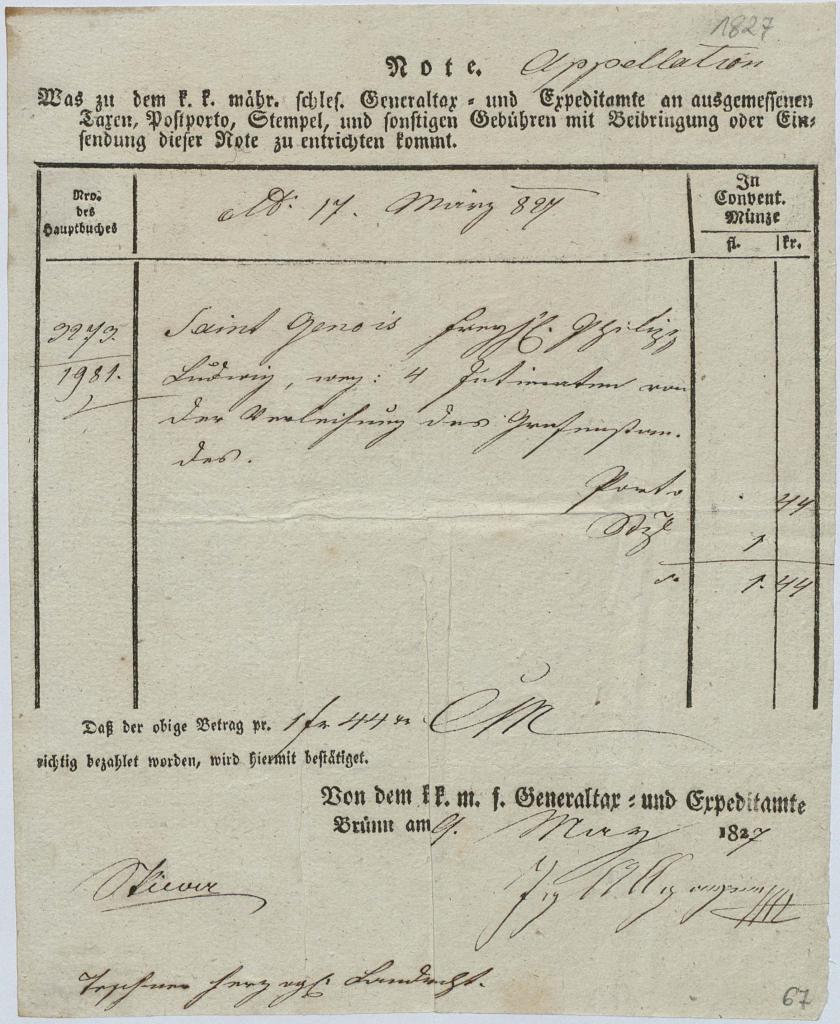 1827
Note. Appellation
Was zu dem k. k. mähr. schles. Generaltax- und Expeditamte an ausgemessenen
Taxen, Postporto, Stempel, und sonstigen Gebühren mit Beibringung oder Ein-
sendung dieser Note zu entrichten kommt.
Nro. des Hauptbuches
dd: 17. März 827
In Convent. Münze
fl. | kr.
3273. Saint Genois Freyh. Philipp
1981. Ludwig, weg: 4 Intimaten von
der Verleihung des Grafenstan-
des.
Porto 44
1
1. 44
Daß der obige Betrag pr. 1 fr 44 kr
richtig bezahlet worden, wird hiermit bestätiget.
Von dem k. k. m. s. Generaltax- und Expeditamte
Brünn am 9. May 1827
Teschner herzogl: Landrecht.
67